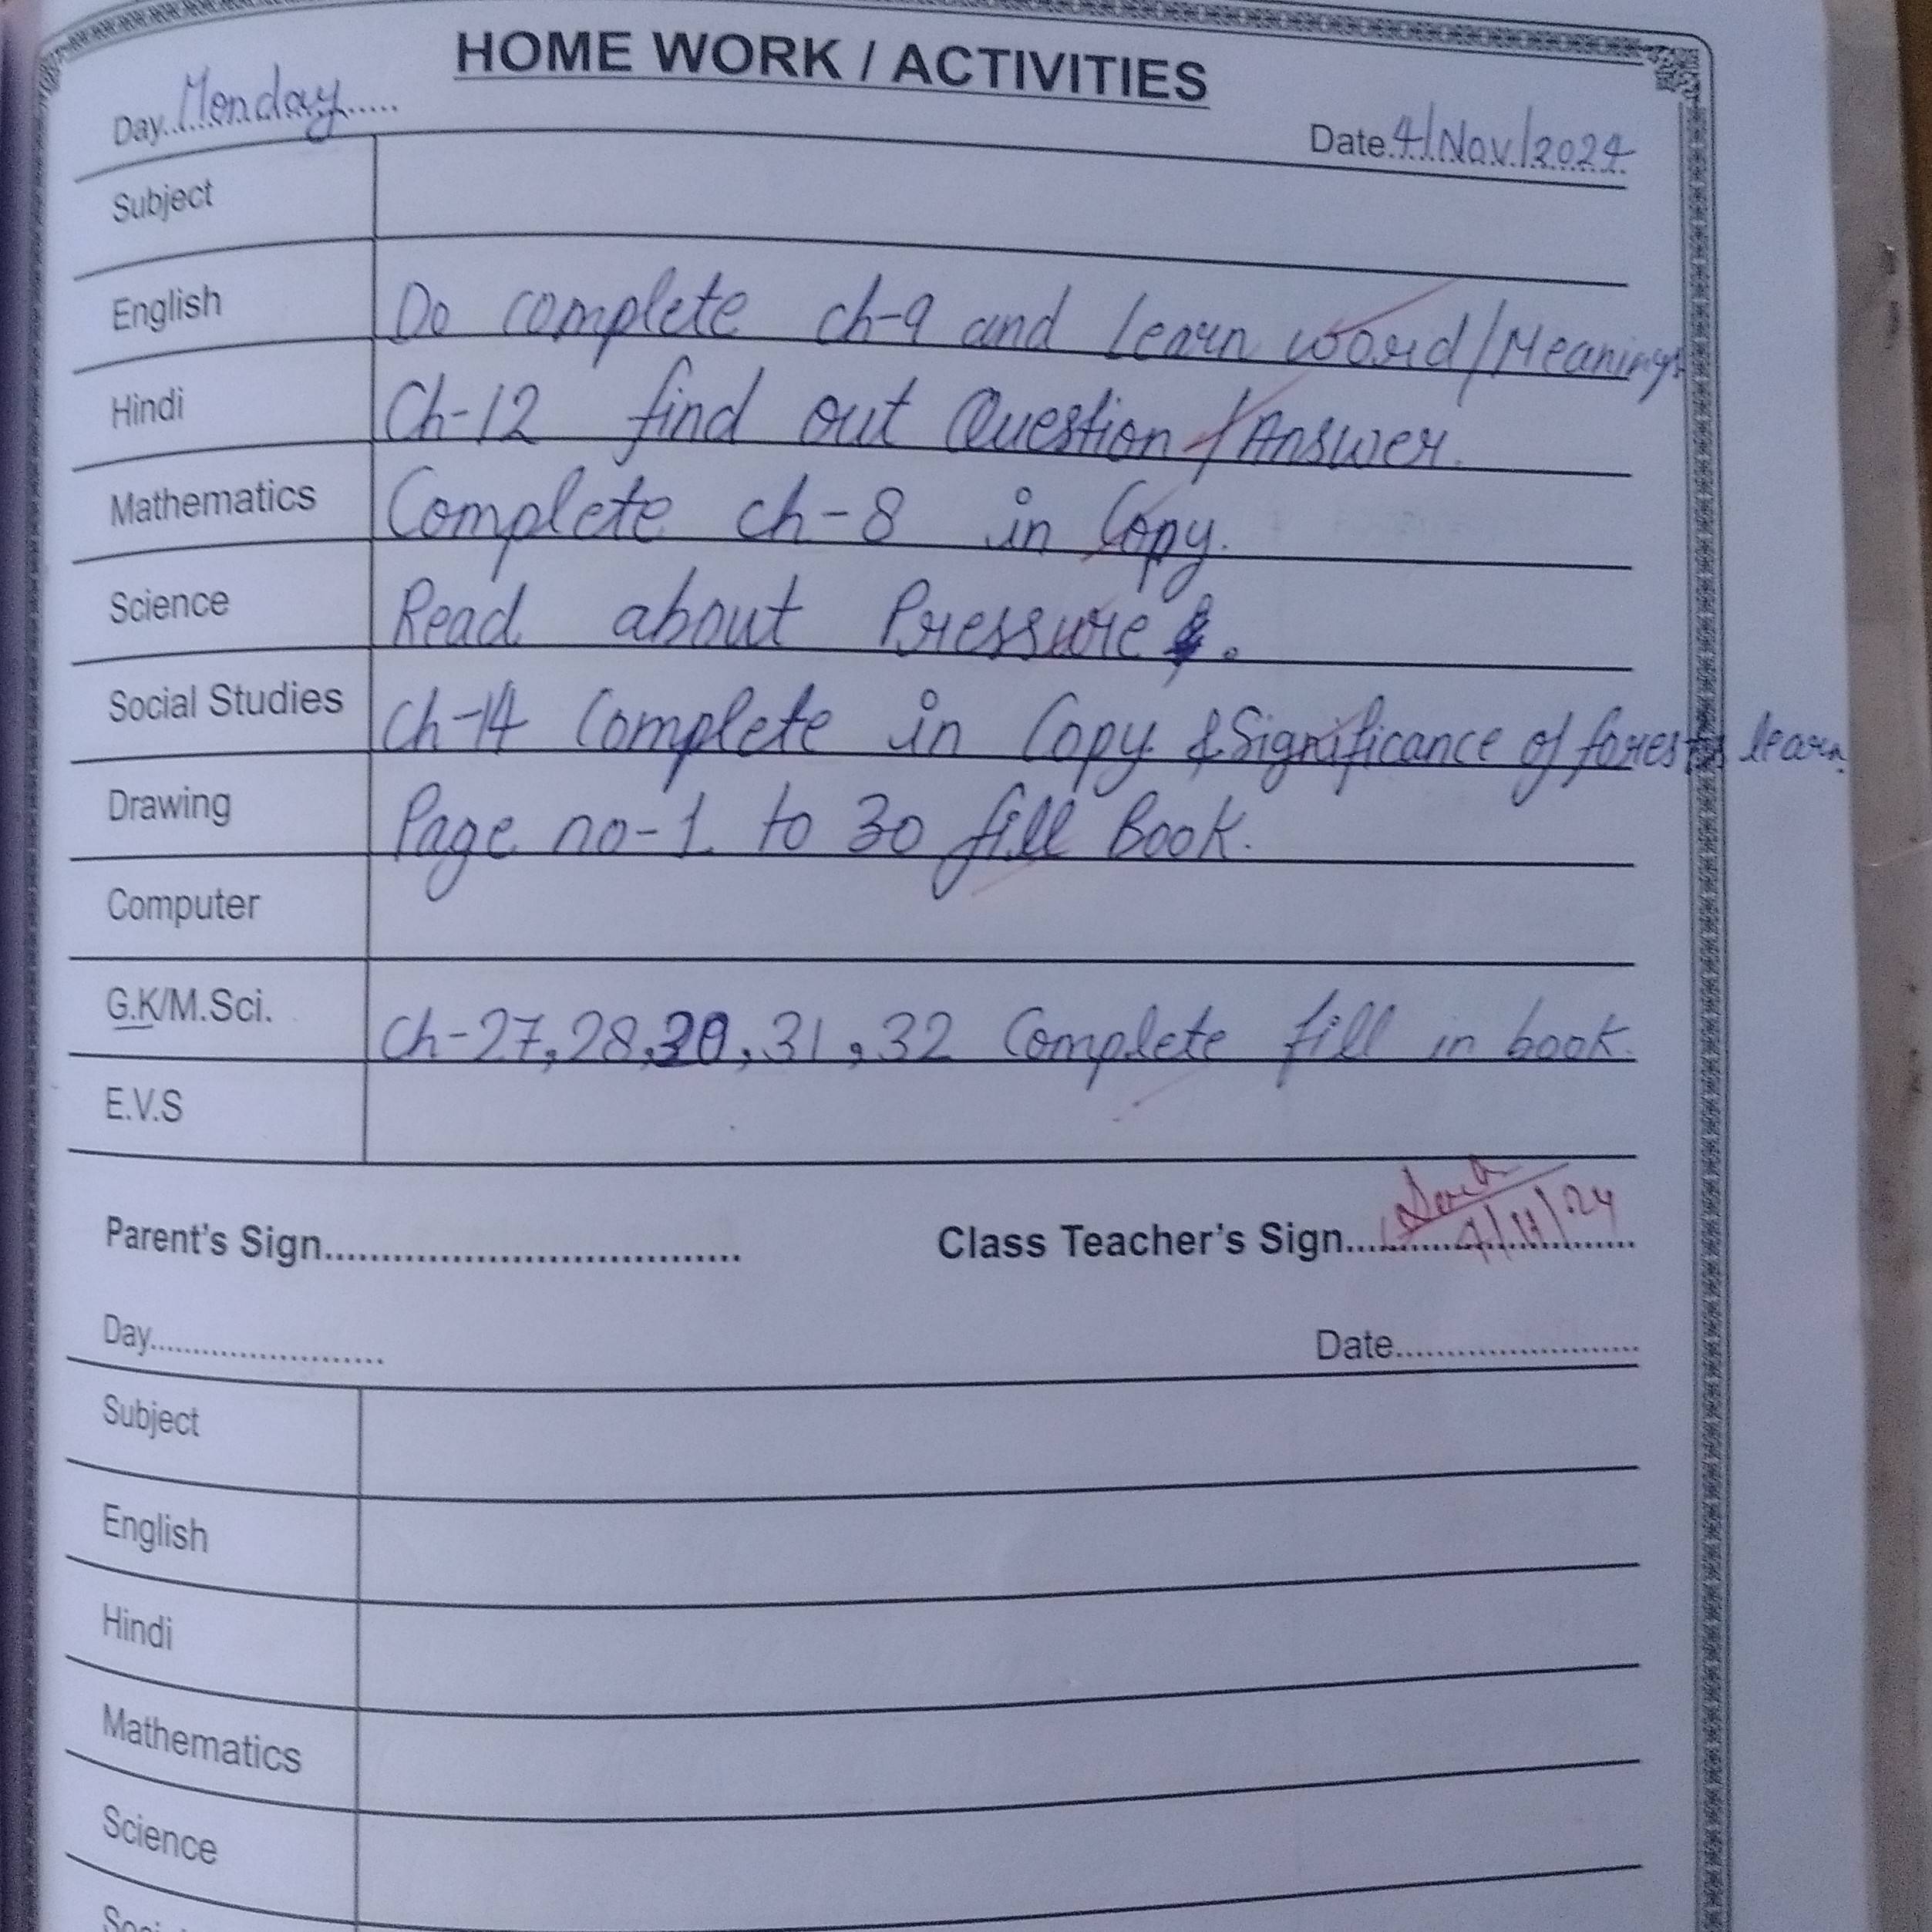 HOME WORK / ACTIVITIES
Day Monday
Date 4/Nov/2024
Subject
English Do complete ch-9 and learn word/Meanings
Hindi Ch-12 find out Question/Answer.
Mathematics Complete ch-8 in Copy.
Science Read about Pressure.
Social Studies Ch-14 Complete in Copy & Significance of forest learn
Drawing Page no-1 to 30 fill Book.
Computer
G.K/M.Sci. Ch-27,28,30,31,32 Complete fill in book.
E.V.S
Parent's Sign
Class Teacher's Sign 4/11/24
Day
Date
Subject
English
Hindi
Mathematics
Science